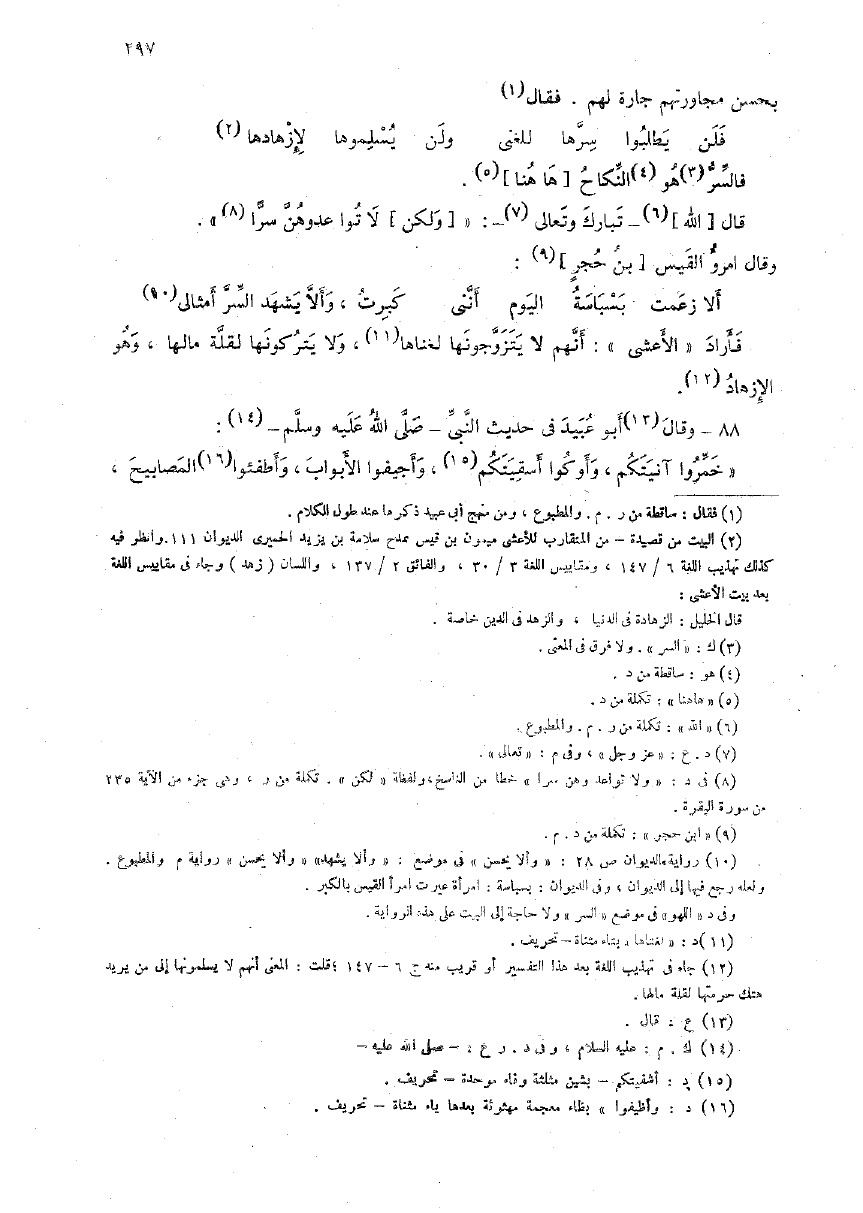 ٢٩٧
بحسن مجاورتهم جارة لهم . فقال(١)
فَلَن يَطلُبُوا سِرَّها للغنى ولَن يُسْلِموها لِإِزْهادها(٢)
فالسِّرُّ(٣)هُو(٤)النِّكاحُ [ هَا هُنا ](٥) .
قال [ الله ](٦) – تَبارك وتَعالى(٧) – : « [ وَلكن ] لَا تُوا عدوهُنَّ سرًّا(٨) » .
وقال امرؤ القَيس [ بنُ حُجرٍ ](٩) :
أَلا زعَمت بَسْبَاسَةُ اليَوم أَنَّنى كَبِرتُ ، وَأَلاَّ يَشهَد السِّرَّ أَمثالى(١٠)
فَأَرادَ « الأَعشى » : أَنَّهم لا يَتَزَوَّجونَها لغناها(١١) ، وَلا يَترُكونَها لقلَّة مالها ، وَهُو
الإِزهادُ(١٢).
٨٨ – وقالَ(١٣)أَبو عُبَيدَ فى حديث النَّبىِّ – صَلَّى اللهُ عَلَيه وسلَّم –(١٤) :
« خَمِّرُوا آنيَتَكُم ، وَأَوكُوا أَسقِيَتَكُم(١٥) ، وَأَجيفوا الأَبوابَ ، وَأَطفئوا(١٦)المَصابيحَ ،
(١) فقال : ساقطة من ر . م . والمطبوع ، ومن منهج أبى عبيد ذكرها عند طول الكلام .
(٢) البيت من قصيدة – من المتقارب للأعشى ميمون بن قيس يمدح سلامة بن يزيد الحميرى الديوان ١١١.وانظر فيه
كذلك تهذيب اللغة ٦ / ١٤٧ ، ومقاييس اللغة ٣ / ٣٠ ، والفائق ٢ / ١٣٧ ، واللسان ( زهد ) وجاء فى مقاييس اللغة
بعد بيت الأعشى :
قال الخليل : الزهادة فى الدنيا ، والزهد فى الدين خاصة .
(٣) ك : « السر » . ولا فرق فى المعنى .
(٤) هو : ساقطة من د .
(٥) « هاهنا » : تكملة من د .
(٦) « الله » : تكملة من ر . م . والمطبوع .
(٧) د . ع : « عز وجل » ، وفى م : « تعالى » .
(٨) فى د : « ولا تواعد وهن سرا » خطا من الناسخ،ولفظة « لكن » . تكملة من ر ، وهى جزء من الآية ٢٣٥
من سورة البقرة .
(٩) « ابن حجر » : تكملة من د . م .
(١٠) رواية مالديوان ص ٢٨ : « وألا يحسن » فى موضع : « وألا يشهد» « وألا يحسن » رواية م والمطبوع .
ولعله رجع فيها إلى الديوان ، وفى الديوان : بسباسة : امرأة عيرت امرأ القيس بالكبر .
وفى د « اللهو » فى موضع « السر » ولا حاجة إلى البيت على هذه الرواية .
(١١)د : « لغتاها » بتاء مثناة – تحريف .
(١٢) جاء فى تهذيب اللغة بعد هذا التفسير أو قريب منه ج ٦ – ١٤٧ ؛قلت : المعنى أنهم لا يسلمونها إلى من يريد
هتك حرمتها لقلة مالها .
(١٣) ع : قال .
(١٤) ك . م : عليه السلام ، وفى د . ر ع : – صلى الله عليه –
(١٥) د : أشفيتكم – بشين مثلثة وفاء موحدة – تحريف .
(١٦) د : وأظيفوا » بظاء معجمة مهثوثة بعدها ياء مثناة – تحريف .